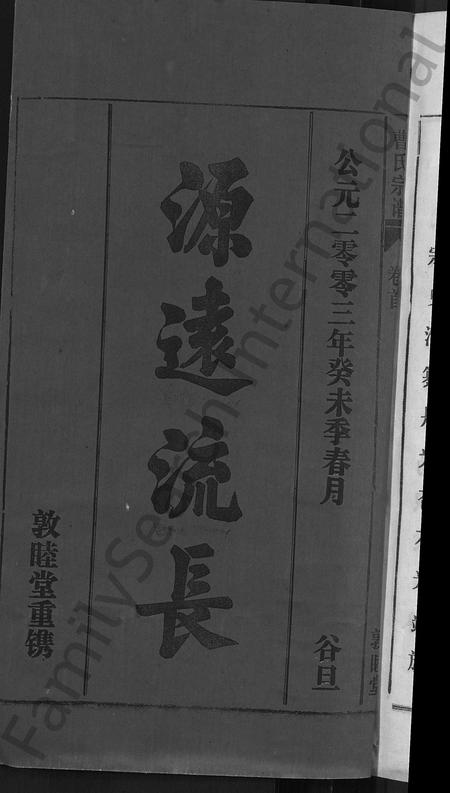 曹氏宗譜
卷首
敦睦堂
公元二零零三年癸未季春月
谷旦
源遠流長
敦睦堂重镌
FamilySearch International